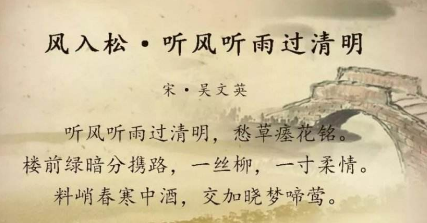 风入松·听风听雨过清明
宋·吴文英
听风听雨过清明，愁草瘗花铭。
楼前绿暗分携路，一丝柳，一寸柔情。
料峭春寒中酒，交加晓梦啼莺。